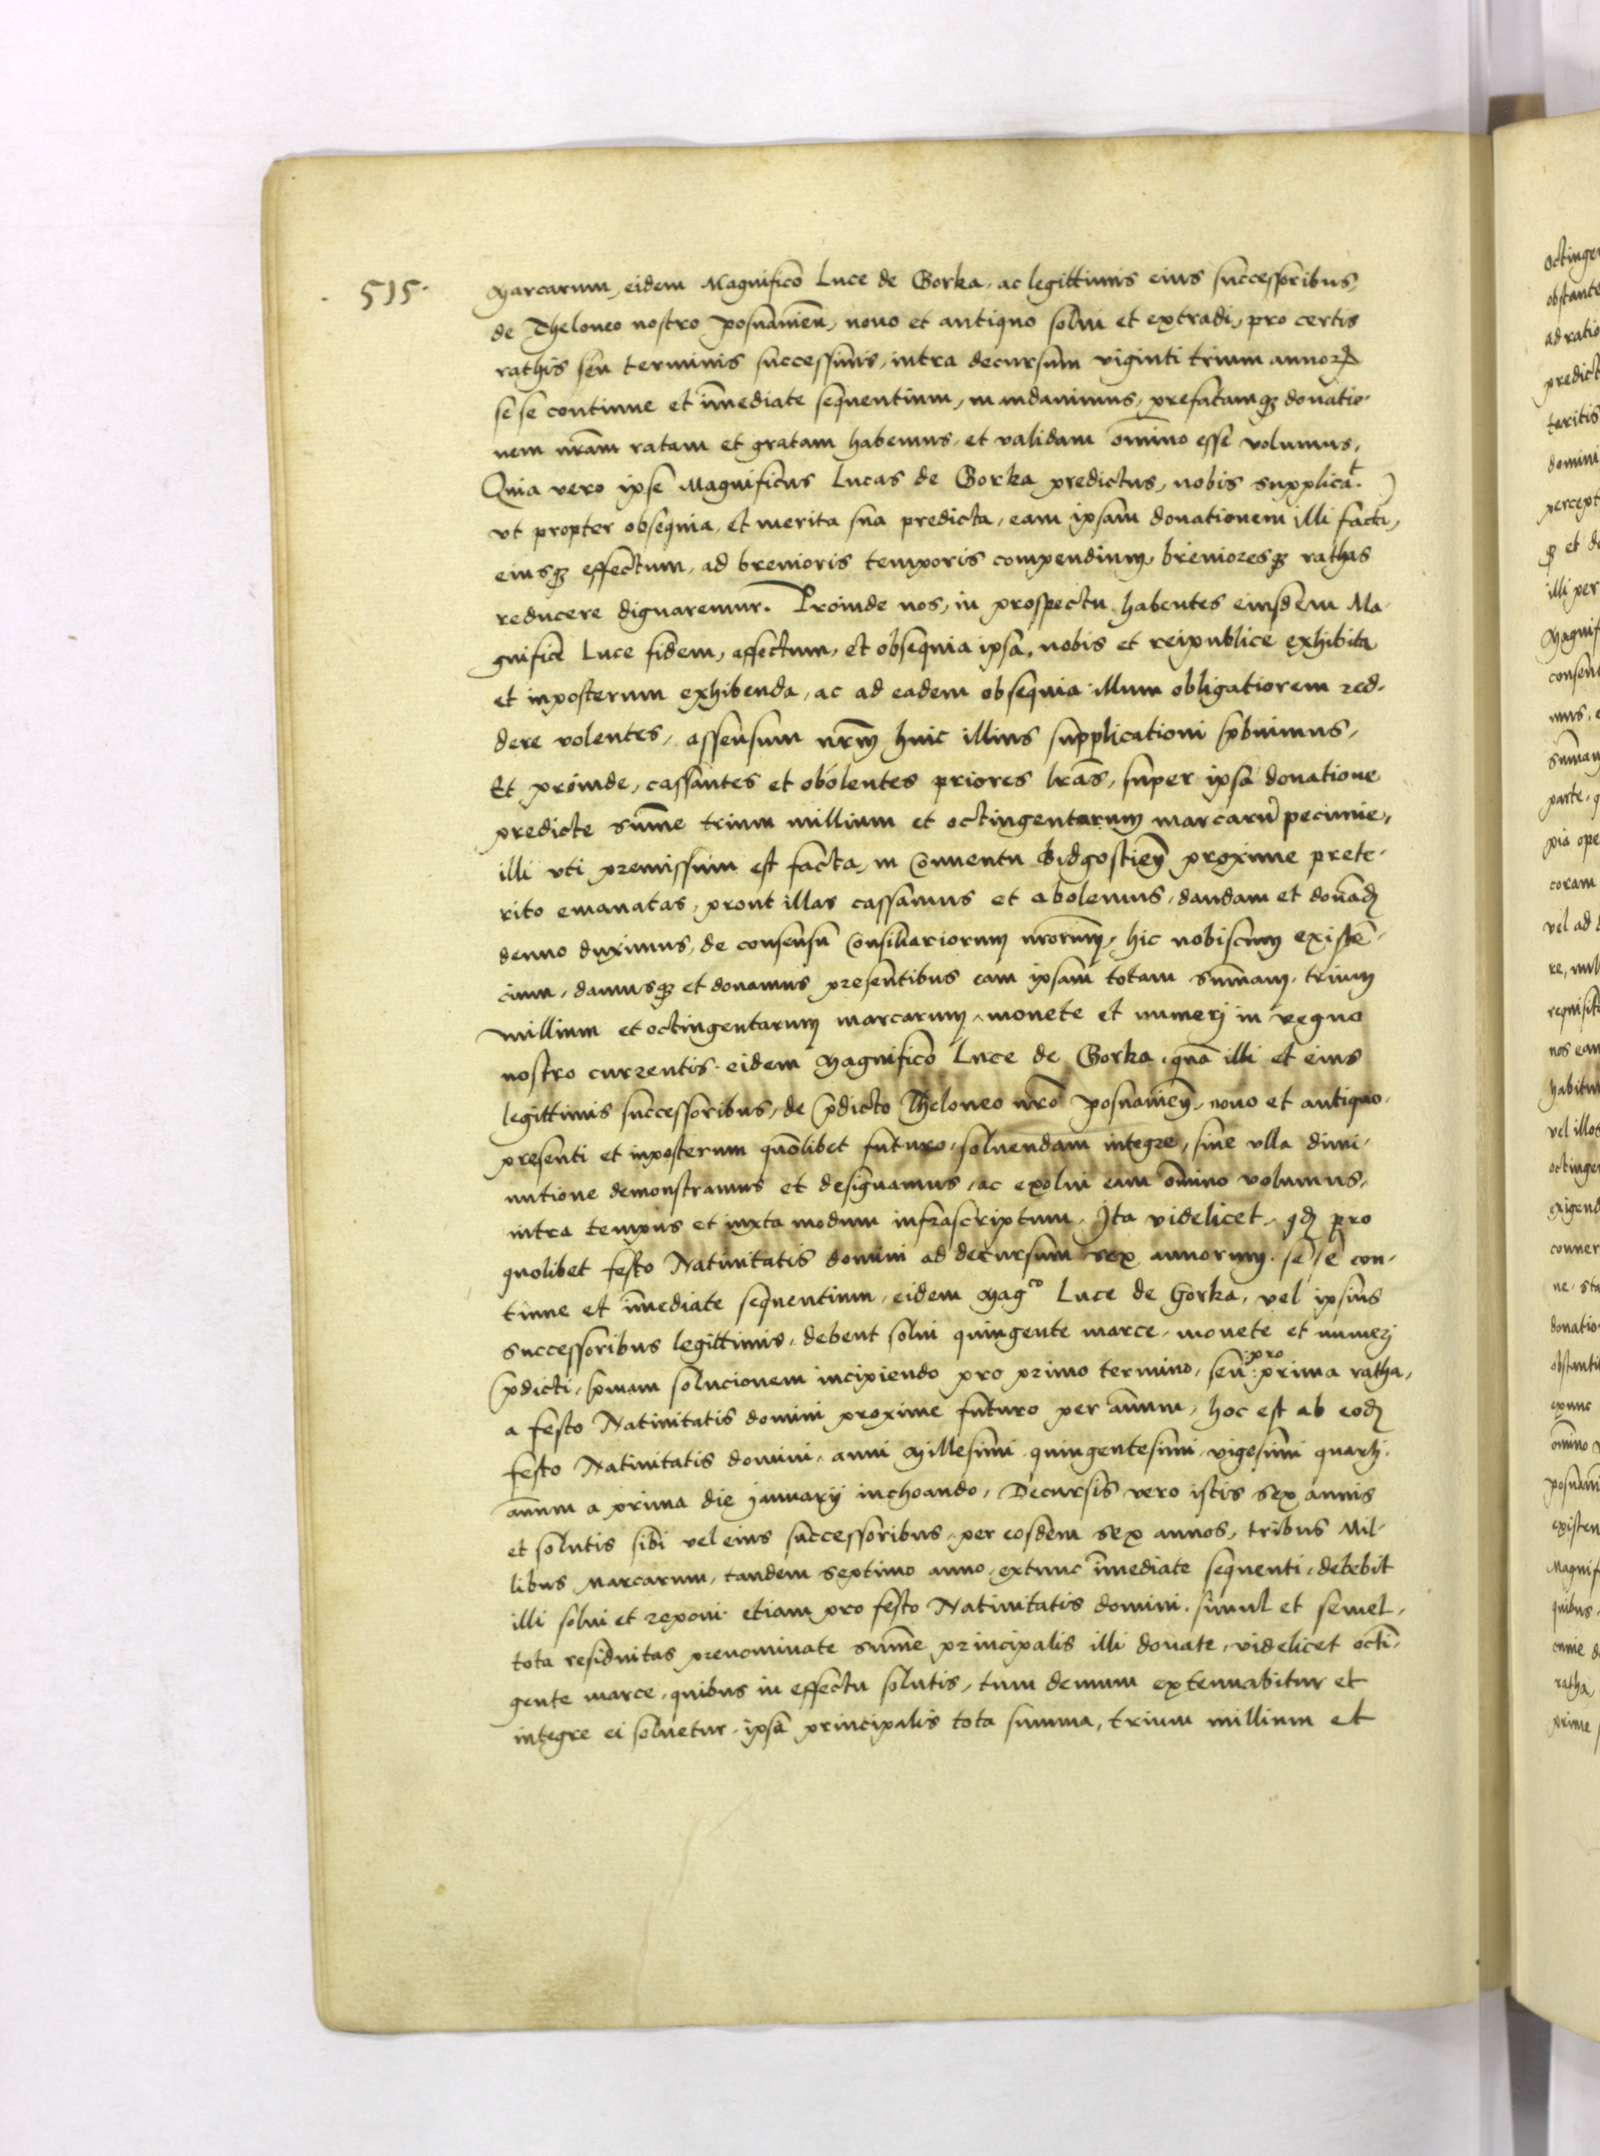 515.
Marcarum, eidem Magnifico Luce de Gorka, ac legittimis eius successoribus,
de Theloneo nostro posnamien, nouo et antiquo solui et extradi, pro certis
rathis seu terminis successiuis, intra decursum viginti trium annorꝝ
se se continue et īmediate sequentium, mandauimus, prefatamqꝫ donatio-
nem nr̄am ratam et gratam habemus, et validam om̄ino esse volumus,
Quia vero ipse Magnificus Lucas de Gorka predictus, nobis supplicat.
vt propter obsequia, et merita sua predicta, eam ipsam donationem illi factā,
eiusqꝫ effectum, ad breuioris temporis compendium, breuioresqꝫ rathas
reducere dignaremur. Proinde nos, in prospectu habentes eiusdem Ma-
gnifici Luce fidem, affectum, et obsequia ipsa, nobis et reipublice exhibita
et inposterum exhibenda, ac ad eadem obsequia illum obligatiorem red-
dere volentes, assensum nr̄m huic illius supplicationi p̄buimus,
Et proinde, cassantes et obolentes priores lr̄as, super ipsa donatione
predicte sum̄e trium millium et octingentarum marcarū pecunie,
illi vti premissum est facta, in Conuentu Bidgostien̄ proxime prete-
rito emanatas, prout illas cassamus et abolemus, dandam et donādꝫ
denuo duximus, de consensu Consiliariorum nr̄orum, hic nobiscum existē-
cium, damusqꝫ et donamus presentibus eam ipsam totam sum̄am, trium
millium et octingentarum marcarum, monete et numerj in regno
nostro currentis, eidem Magnifico Luce de Gorka, quā illi et eius
legittimis successoribus, de p̄dicto Theloneo nr̄o Posnamien̄, nouo et antiquo,
presenti et inposterum quōlibet futuro, soluendam integre, sine vlla dimi-
nutione demonstramus et designamus, ac exolui eam om̄ino volumus,
intra tempus et iuxta modum infrascriptum, Ita videlicet, qdꝫ pro
quolibet festo Natiuitatis domini ad decursum sex annorum, se se con-
tinue et īmediate sequentium, eidem Magco Luce de Gorka, vel ipsius
successoribus legittimis, debent solui quingente marce, monete et numerj
p̄dicti, p̄mam solucionem incipiendo pro primo termino, seu pro prima ratha,
a festo Natiuitatis domini proxime futuro per annum, hoc est ab eodꝫ
festo Natiuitatis domini, anni Millesimi quingentesimi vigesimi quartj.
annum a prima die januarij inchoando, Decursis vero istis sex annis
et solutis sibi vel eius successoribus, per eosdem sex annos, tribus Mil-
libus Marcarum, tandem septimo anno, extunc īmediate sequenti, debebit
illi solui et reponi etiam pro festo Natiuitatis domini, simul et semel,
tota residuitas prenominate sum̄e principalis illi donate, videlicet octin-
gente marce, quibus in effectu solutis, tum demum extenuabitur et
integre ei soluetur, ipsa principalis tota summa, trium millium et